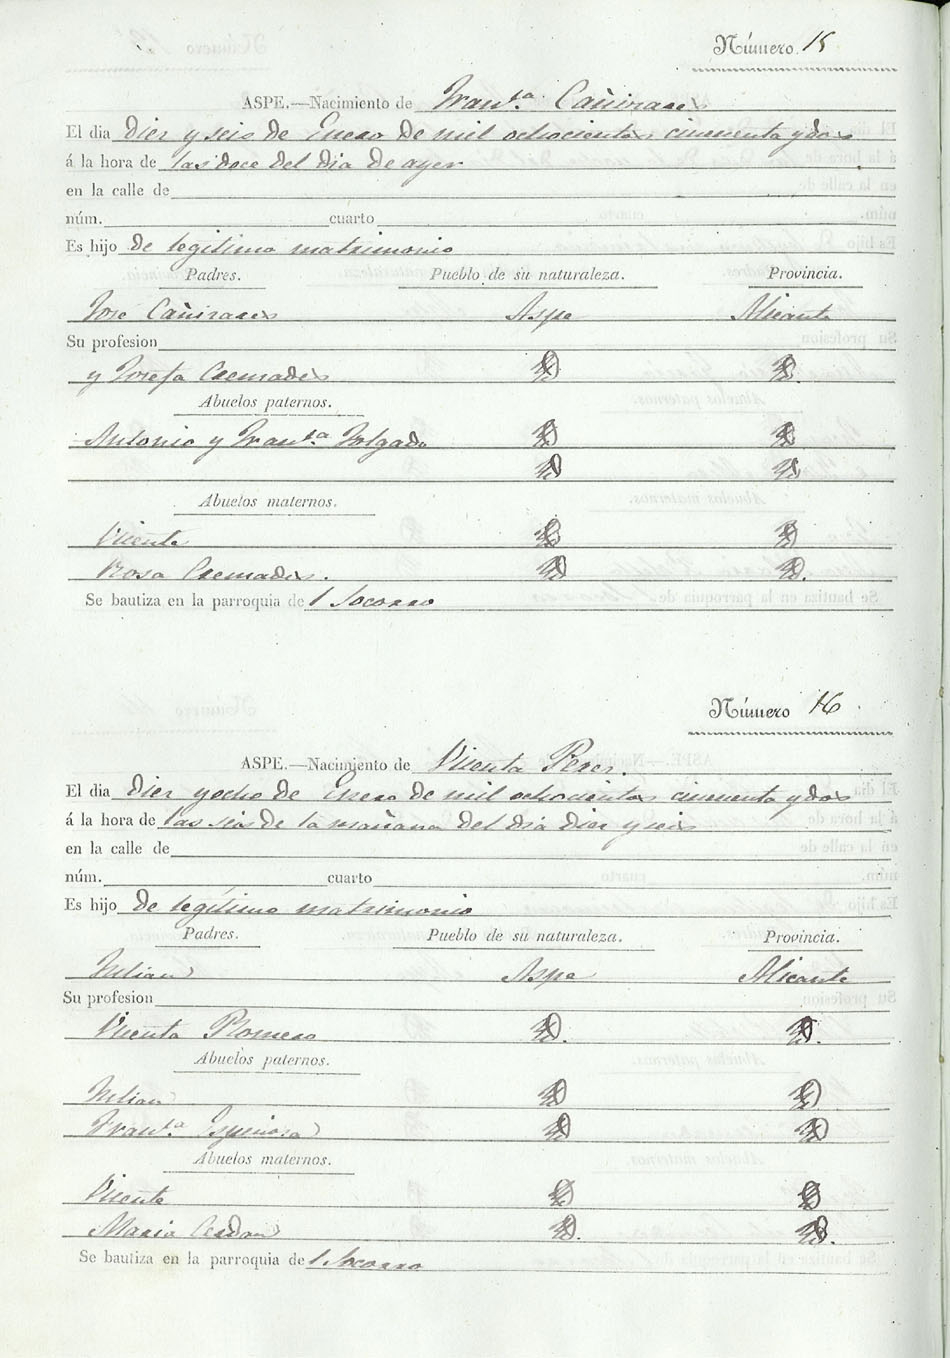 Número 15
ASPE.—Nacimiento de Franca Cañizares
El dia Diez y seis de Enero de mil ochocientos cincuenta y dos
á la hora de las doce del dia de ayer
en la calle de
núm. cuarto
Es hijo de legitimo matrimonio
Padres. Pueblo de su naturaleza. Provincia.
Jose Cañizares Aspe Alicante
Su profesion
y Josefa Cremades
Abuelos paternos.
Antonio y Franca
Abuelos maternos.
Vicente
Rosa Cremades.
Se bautiza en la parroquia del Socorro
Número 16
ASPE.—Nacimiento de Vicenta Perez.
El dia Diez y ocho de Enero de mil ochocientos cincuenta y dos
á la hora de las seis de la mañana del dia diez y seis
en la calle de
núm. cuarto
Es hijo de legitimo matrimonio
Padres. Pueblo de su naturaleza. Provincia.
Julian Aspe Alicante
Su profesion
Vicenta Romero
Abuelos paternos.
Julian
Franca Espinosa
Abuelos maternos.
Vicente
Maria Cerdan
Se bautiza en la parroquia del Socorro